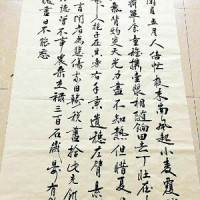 閑月五月人倍忙夜来南風起小麦覆隴
荷簞食童稚携壺漿相隨餉田去丁壮在
氣背灼炎天光力盡不知熱但惜夏
人抱子在其旁右手秉遺穗左臂懸
言聞者為悲傷家田輸税盡拾此充飢
功德曾不事農桑吏禄三百石歲晏有餘
愧盡日不能忘